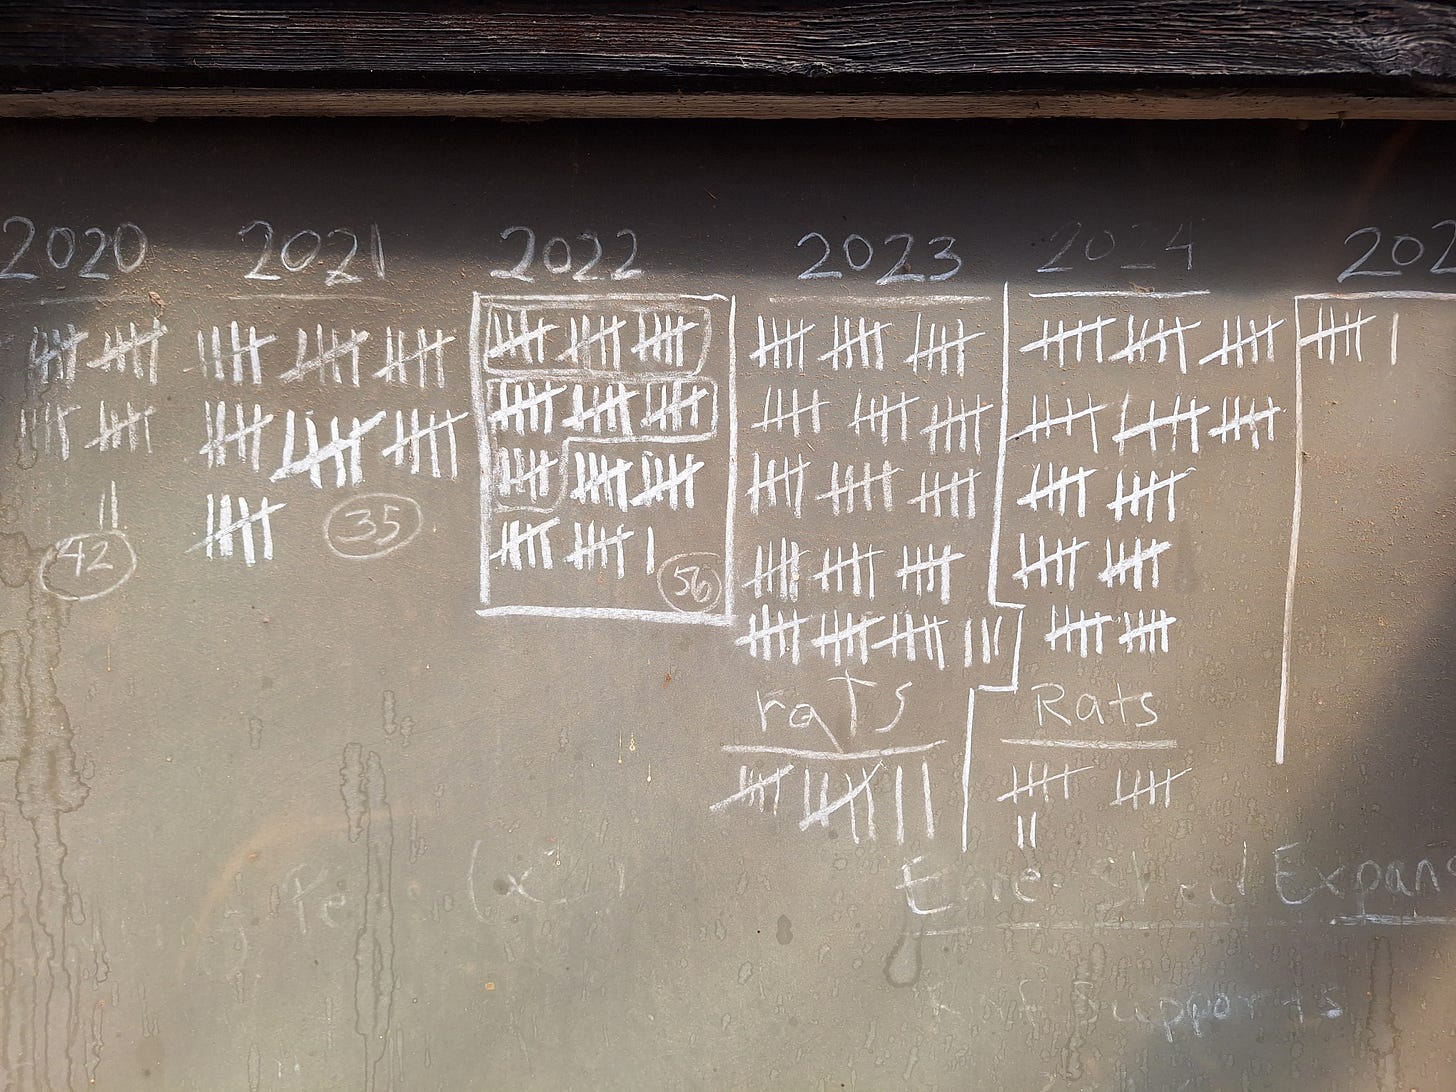 2020 2021 2022 2023 2024 202
42
35
56
rats Rats
Expans
Supports